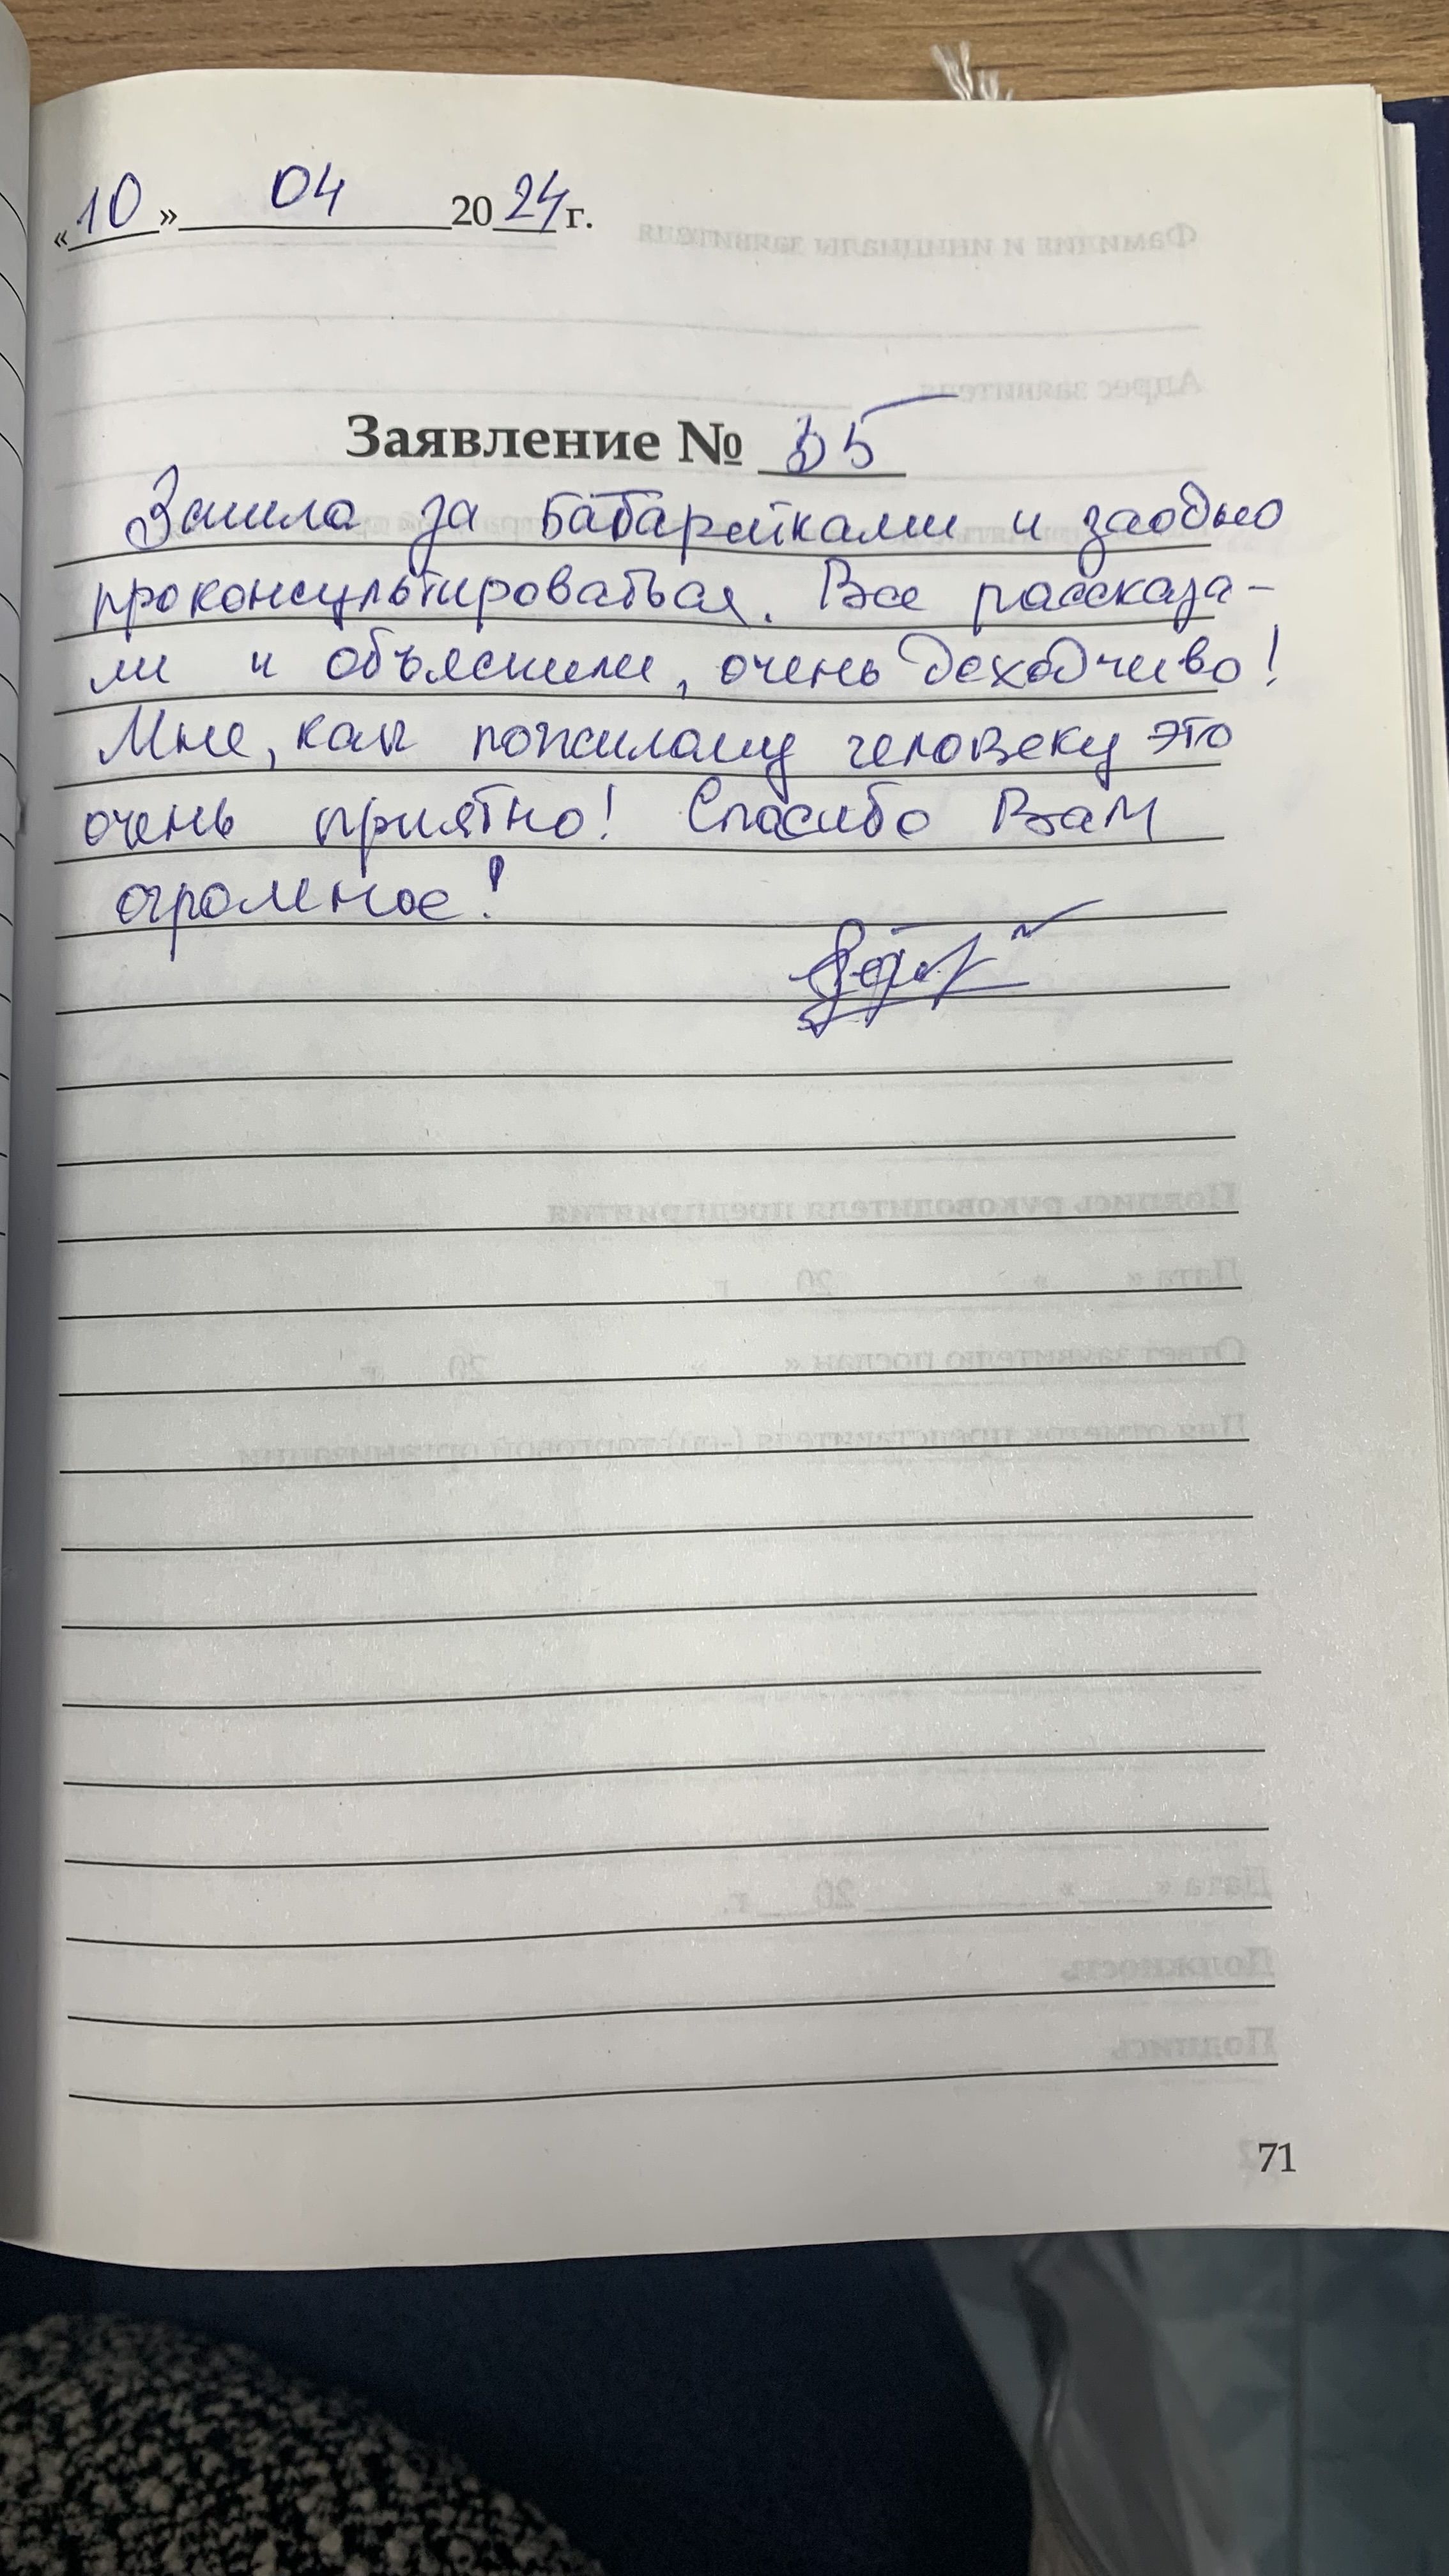 «10» 04 2024 г.
Заявление № 55
Зашла за батарейками и заодно
проконсультироваться. Все рассказа-
ли и объяснили, очень доходчиво!
Мне, как пожилому человеку это
очень приятно! Спасибо Вам
огромное!
71